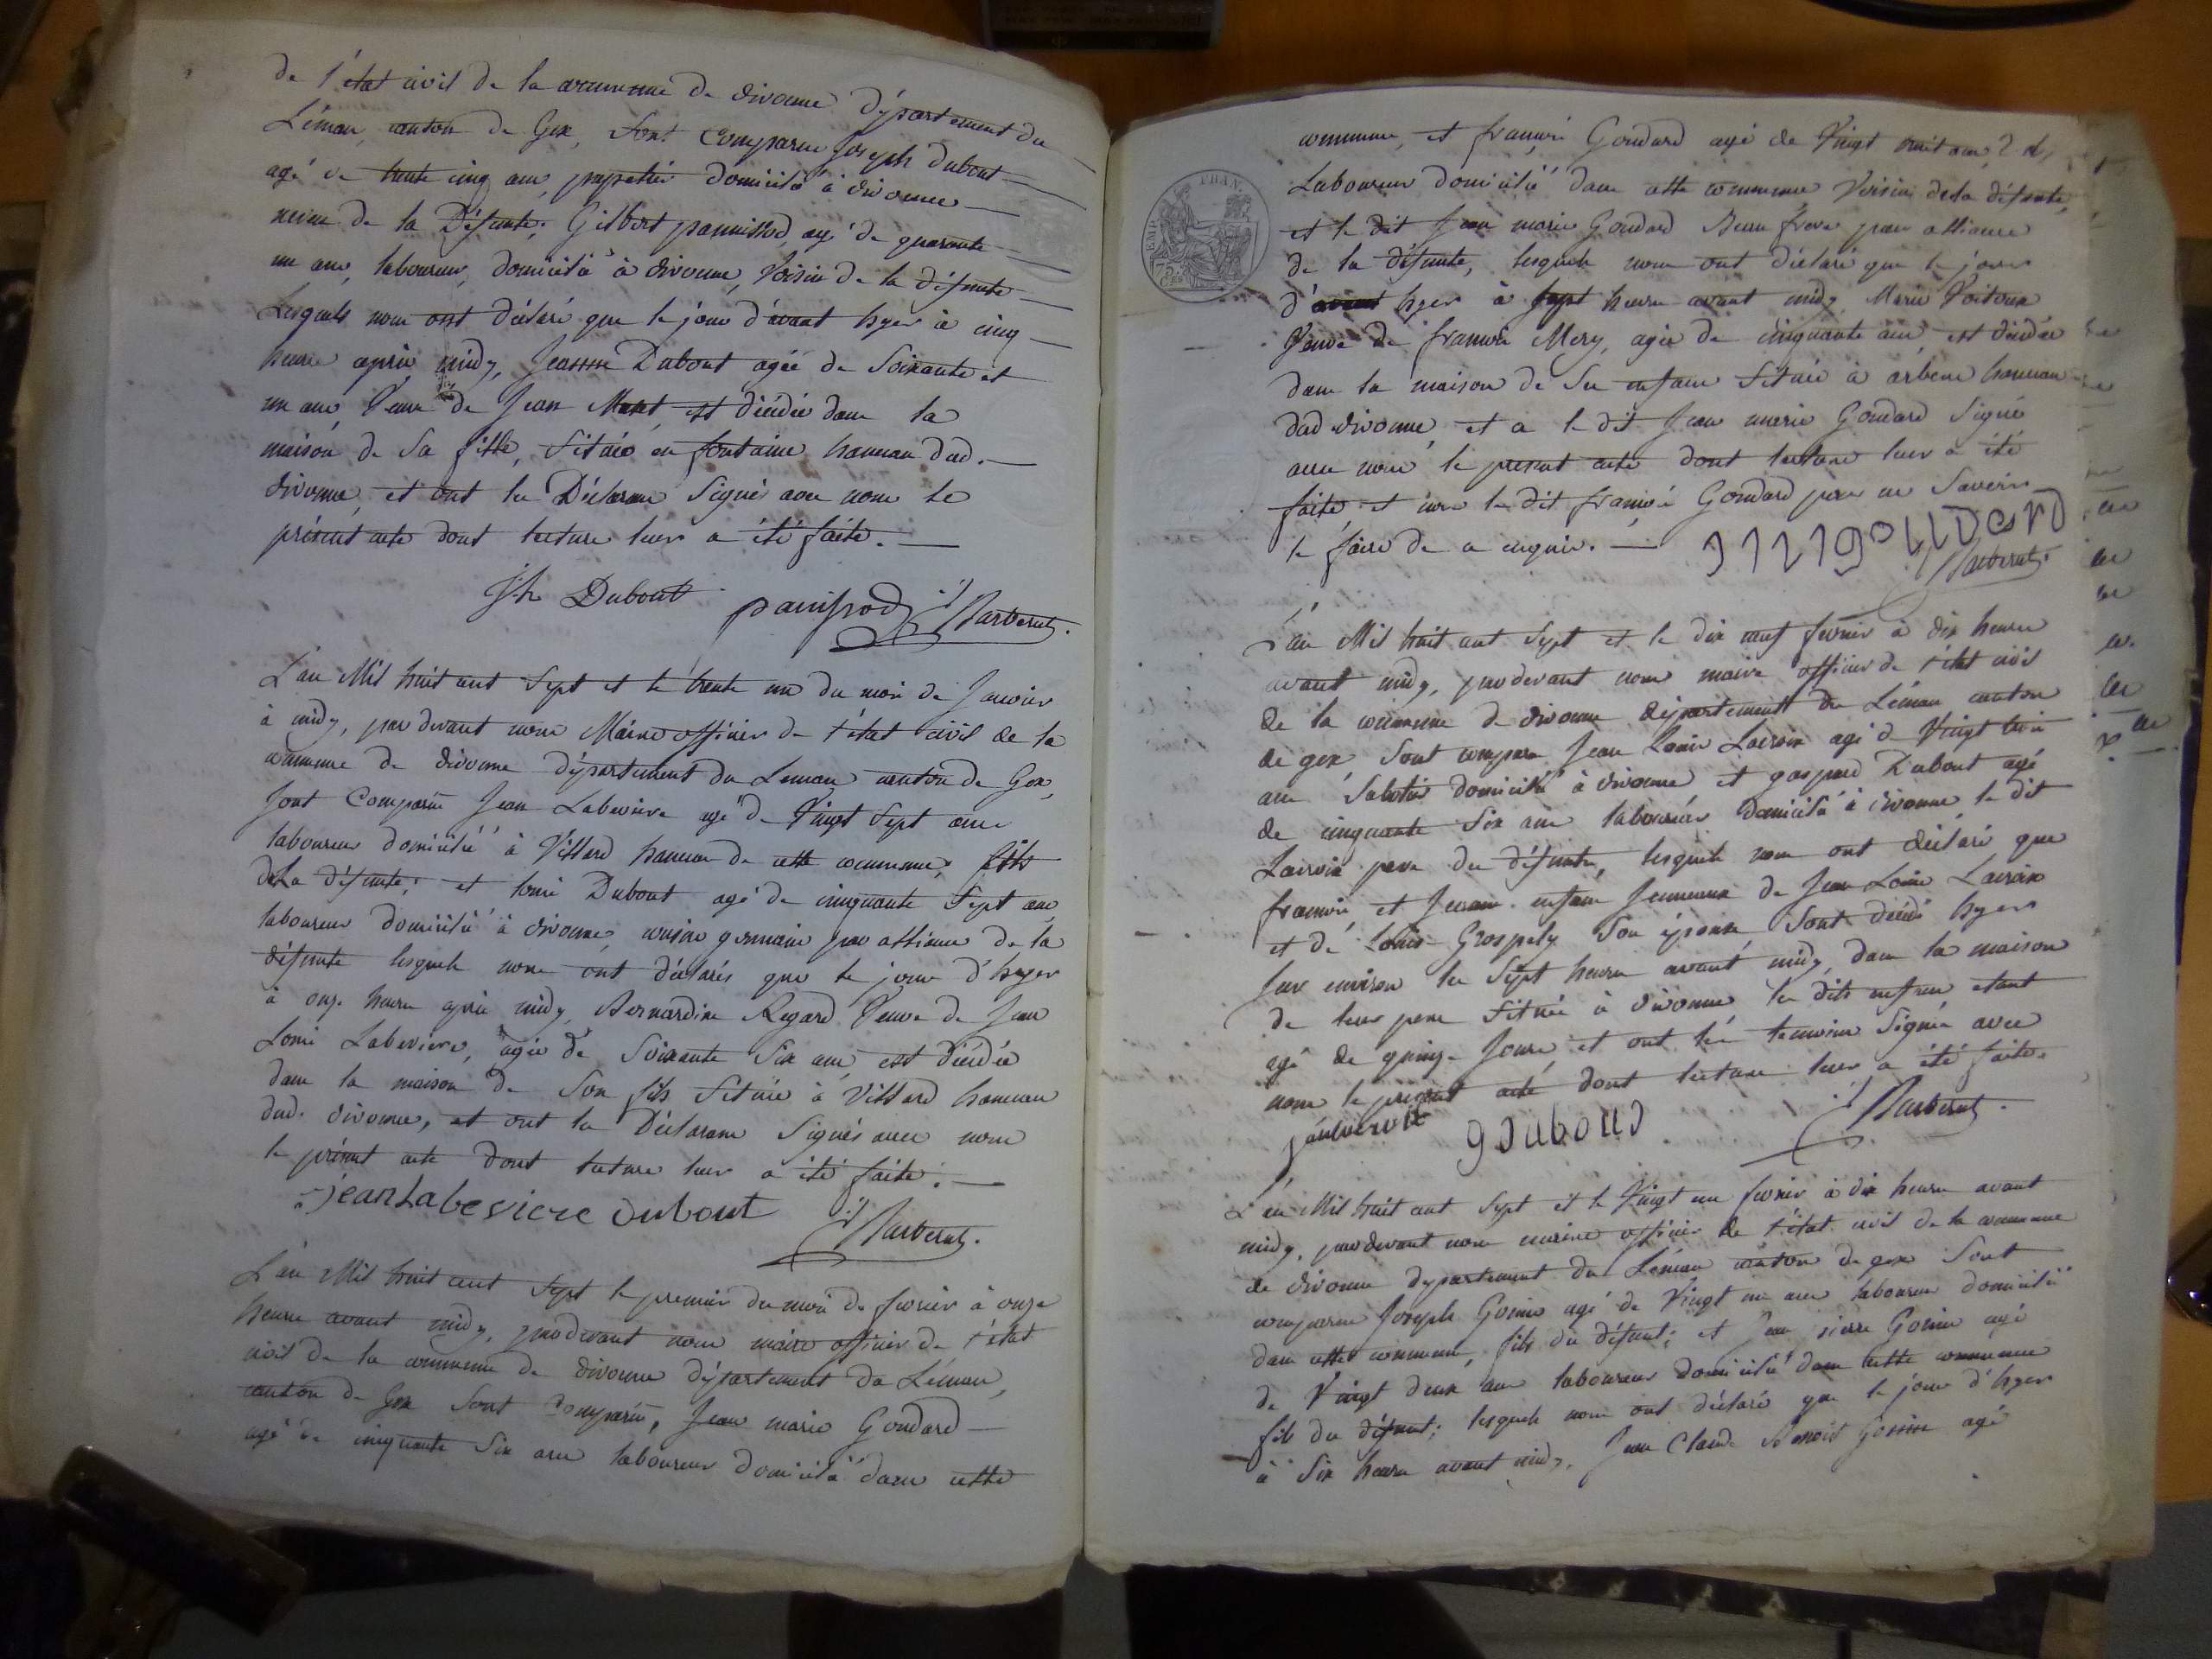 de l'état civil de la commune de divonne département du
Léman, canton de Gex, sont comparus Joseph Dubout
agé de trente cinq ans, papetier domicilié à divonne
neveu de la Défunte; Gilbert panissod, agé de quarante
un ans, laboureur, domicilié à divonne, Voisin de la défunte
Lesquels nous ont déclaré que le jour d'avant hyer à cinq
heures après midy, Jeanne Dubout agée de soixante et
un ans, Veuve de Jean est décédée dans la
maison de sa fille, située en fontaine hameau dud.
divonne, et ont les Déclarans signés avec nous le
présent acte dont lecture leur a été faite.
Jh Dubout panissod Barberat.
L'an Mil huit cent sept et le trente un du mois de Janvier
à midy, par devant nous Maire officier de l'état civil de la
commune de divonne département du Leman canton de Gex,
sont Comparus Jean Labeviere agé de Vingt sept ans
laboureur domicilié à Villard hameau de cette commune, fils
de la défunte; et louis Dubout agé de cinquante sept ans,
laboureur domicilié à divonne, cousin germain par alliance de la
défunte lesquels nous ont déclarés que le jour d'hyer
à onze heures après midy Bernardine Regard Veuve de Jean
Louis Labeviere, agée de soixante six ans, est décédée
dans la maison de son fils située à Villard hameau
dud. divonne, et ont les Déclarans signés avec nous
le présent acte dont lecture leur a été faite.
jean Labeviere Dubout
Barberat.
L'an Mil huit cent sept le premier du mois de fevrier à onze
heures avant midy, par devant nous maire officier de l'état
civil de la commune de divonne département du Léman,
canton de Gex sont comparus, Jean marie Goudard
agé de cinquante six ans laboureur domicilié dans cette
commune, et françois Goudard agé de Vingt huit ans
Laboureur domicilié dans cette commune Voisin de la défunte,
et le dit Jean marie Goudard Beau frere par alliance
de la défunte, lesquels nous ont déclaré que le jour
d'avant hyer à sept heures avant midy Marie
Veuve de françois Mery, agée de cinquante ans, est décédée
dans la maison de ses enfans située à arbere hameau
dud divonne, et a le dit Jean marie Goudard signé
avec nous le present acte dont lecture leur a été
faite, et non le dit françois Goudard pour ne savoir
le faire de ce enquis.
goudard
Barberat.
L'an Mil huit cent sept et le dix neuf fevrier à dix heures
avant midy, par devant nous maire officier de l'état civil
de la commune de divonne département du Léman canton
de gex, sont comparus Jean Louis Lacroix agé de Vingt huit
ans sabotier domicilié à divonne, et gaspard Dubout agé
de cinquante six ans laboureur domicilié à divonne le dit
Lacroix pere des défunts, lesquels nous ont déclaré que
françois, et enfans Jumeaux de Jean Louis Lacroix
et de Louise Grospely son épouse sont décédés hyer
sur environ les sept heures avant midy, dans la maison
de leur pere située à divonne, les dits enfans etant
agé de quinze Jours, et ont les temoins signés avec
nous le present acte dont lecture leur a été faite.
g Duboud Barberat.
L'an Mil huit cent sept et le Vingt un fevrier à dix heures avant
midy, par devant nous maire officier de l'état civil de la commune
de divonne departement du Léman canton de gex sont
comparus Joseph Gonin agé de Vingt un ans laboureur domicilié
dans cette commune, fils du défunt; et Jean pierre Gonin agé
de Vingt deux ans laboureur domicilié dans cette commune
fils du défunt; lesquels nous ont déclaré que le jour d'hyer
à six heures avant midy. Jean Claude Benoit Gonin agé